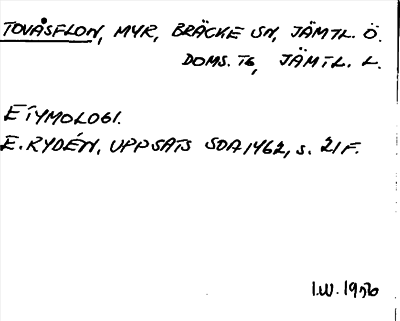 TOVÅSFLON, MYR, BRÄCKE SN, JÄMTL. Ö.
DOMS. TG, JÄMTL. L.
ETYMOLOGI.
E. RYDÉN, UPPSATS SOA 1462, s. 21 F.
I.W. 1956